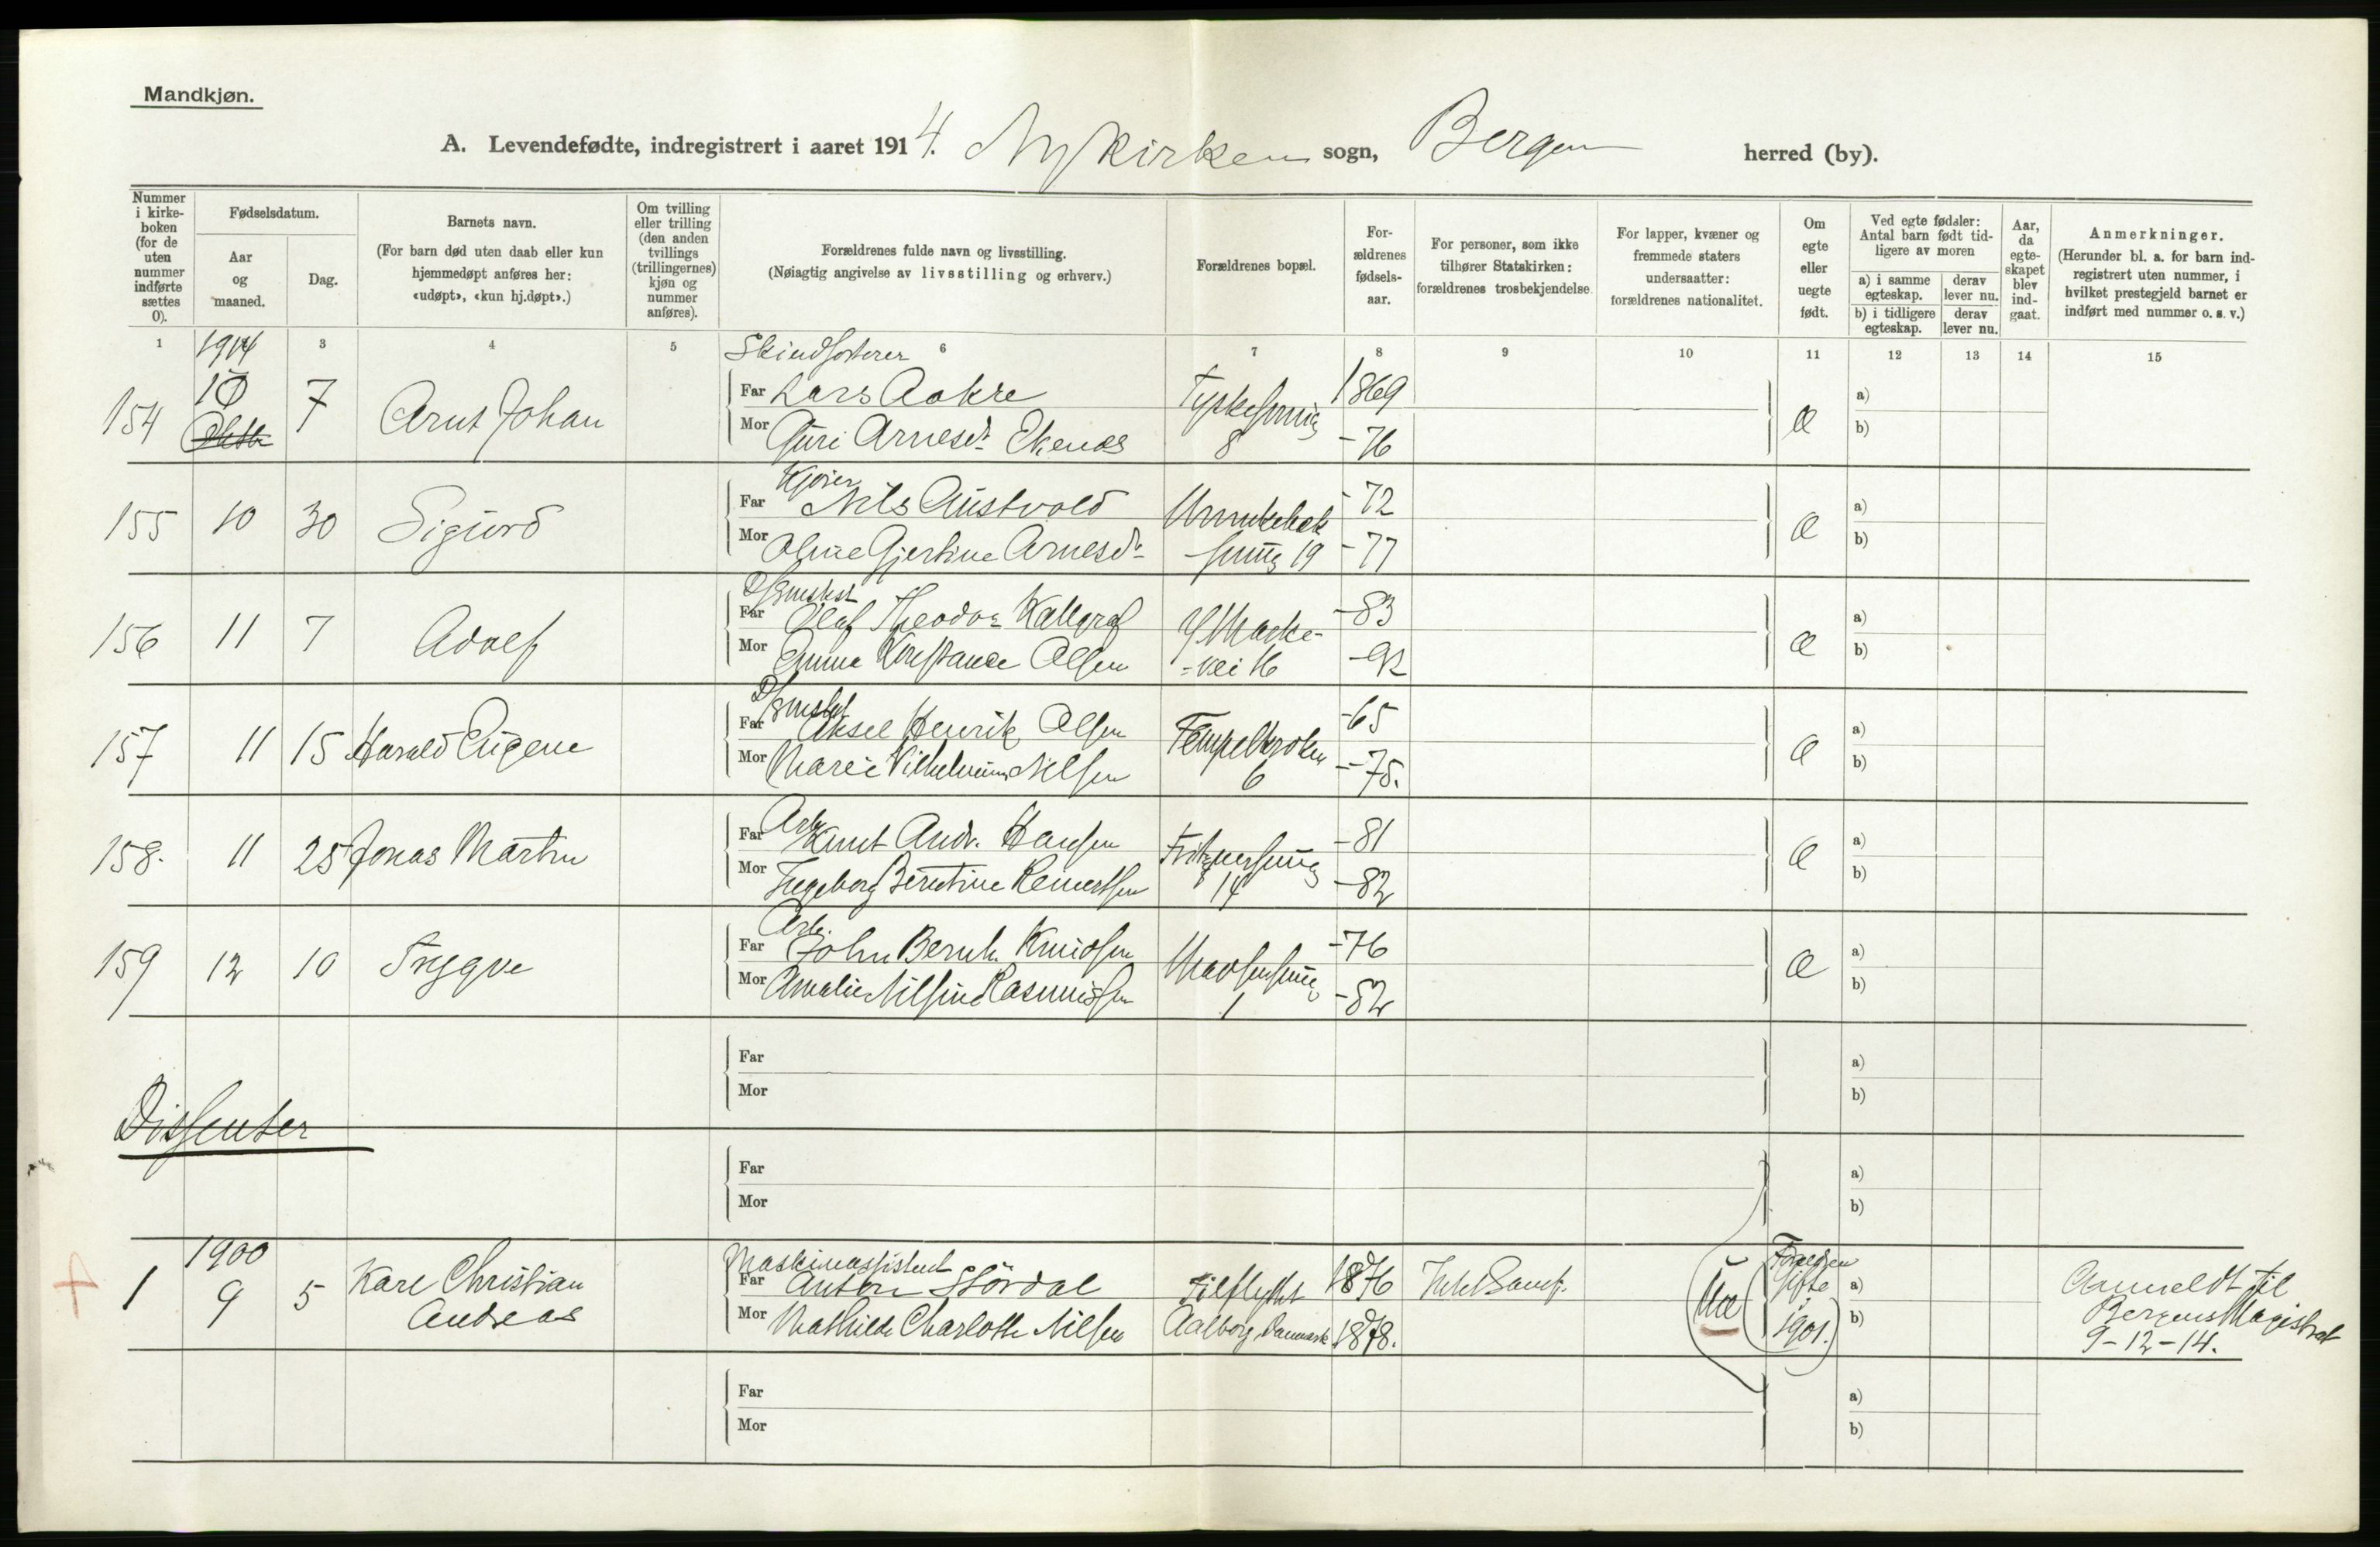 Mandkjøn.
A. Levendefødte, indregistrert i aaret 1914. Nykirken sogn, Bergen herred (by).
Nummer i kirke-boken (for de uten nummer indførte sættes 0).
Fødselsdatum.
Aar og maaned.
Dag.
Barnets navn.
(For barn død uten daab eller kun hjemmedøpt anføres her: «udøpt», «kun hj.døpt».)
Om tvilling eller trilling (den anden tvillings (trillingernes) kjøn og nummer anføres).
Forældrenes fulde navn og livsstilling.
(Nøiagtig angivelse av livsstilling og erhverv.)
Forældrenes bopæl.
For-ældrenes fødsels-aar.
For personer, som ikke tilhører Statskirken: forældrenes trosbekjendelse.
For lapper, kvæner og fremmede staters undersaatter: forældrenes nationalitet.
Om egte eller uegte født.
Ved egte fødsler: Antal barn født tid-ligere av moren
a) i samme egteskap.
derav lever nu.
b) i tidligere egteskap.
derav lever nu.
Aar, da egte-skapet blev ind-gaat.
Anmerkninger.
(Herunder bl. a. for barn ind-registrert uten nummer, i hvilket prestegjeld barnet er indført med nummer o. s. v.)
1 3 4 5 6 7 8 9 10 11 12 13 14 15
1914
154 10 7 Arnt Johan
Far Lars Aakre 1869 a)
Mor Guri Arnesdr. Ekenæs 8 -76 b)
155 10 30 Sigurd
Kjører
Far Nils Austvold -72 a)
Mor Oline Gjertine Arnesdr. 19 -77 b)
156 11 7 Adolf
Far Olaf Theodor Kallgraf -83 a)
Mor Anna Konstance Olsen -vei 16 -92 b)
157 11 15 Harald Eugene
Far Aksel Henrik Olsen Tempelkroken -65 a)
Mor Marie Vilhelmine Nilsen 6 -75. b)
158. 11 25 Jonas Martin
Arb.
Far Knut Andr. Hansen -81 a)
Mor Ingeborg Berntine Reinertsen 14 -82 b)
159 12 10 Trygve
Arb.
Far John Bernh. Knudsen -76 a)
Mor Amalie Nilsine Rasmussen 1 -82 b)
Far a)
Mor b)
Dissenter
Far a)
Mor b)
1900
1 9 5 Karl Christian Andreas
Maskinassistent
Far Anton Stördal Tilflyttet 1876 a)
Mor Mathilde Charlotte Nilsen Aalborg Danmark 1878. b)
Uæ
Forældre gifte i 1901.
Anmeldt til
Bergens Magistrat
9-12-14.
Far a)
Mor b)